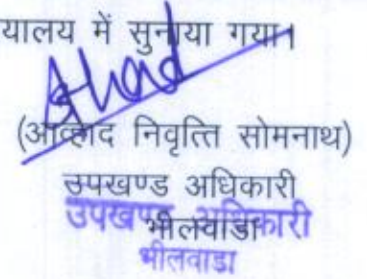 यालय में सुनाया गया।
(आव्हाद निवृत्ति सोमनाथ)
उपखण्ड अधिकारी
उपखण्ड अधिकारी
भीलवाडा
भीलवाडा